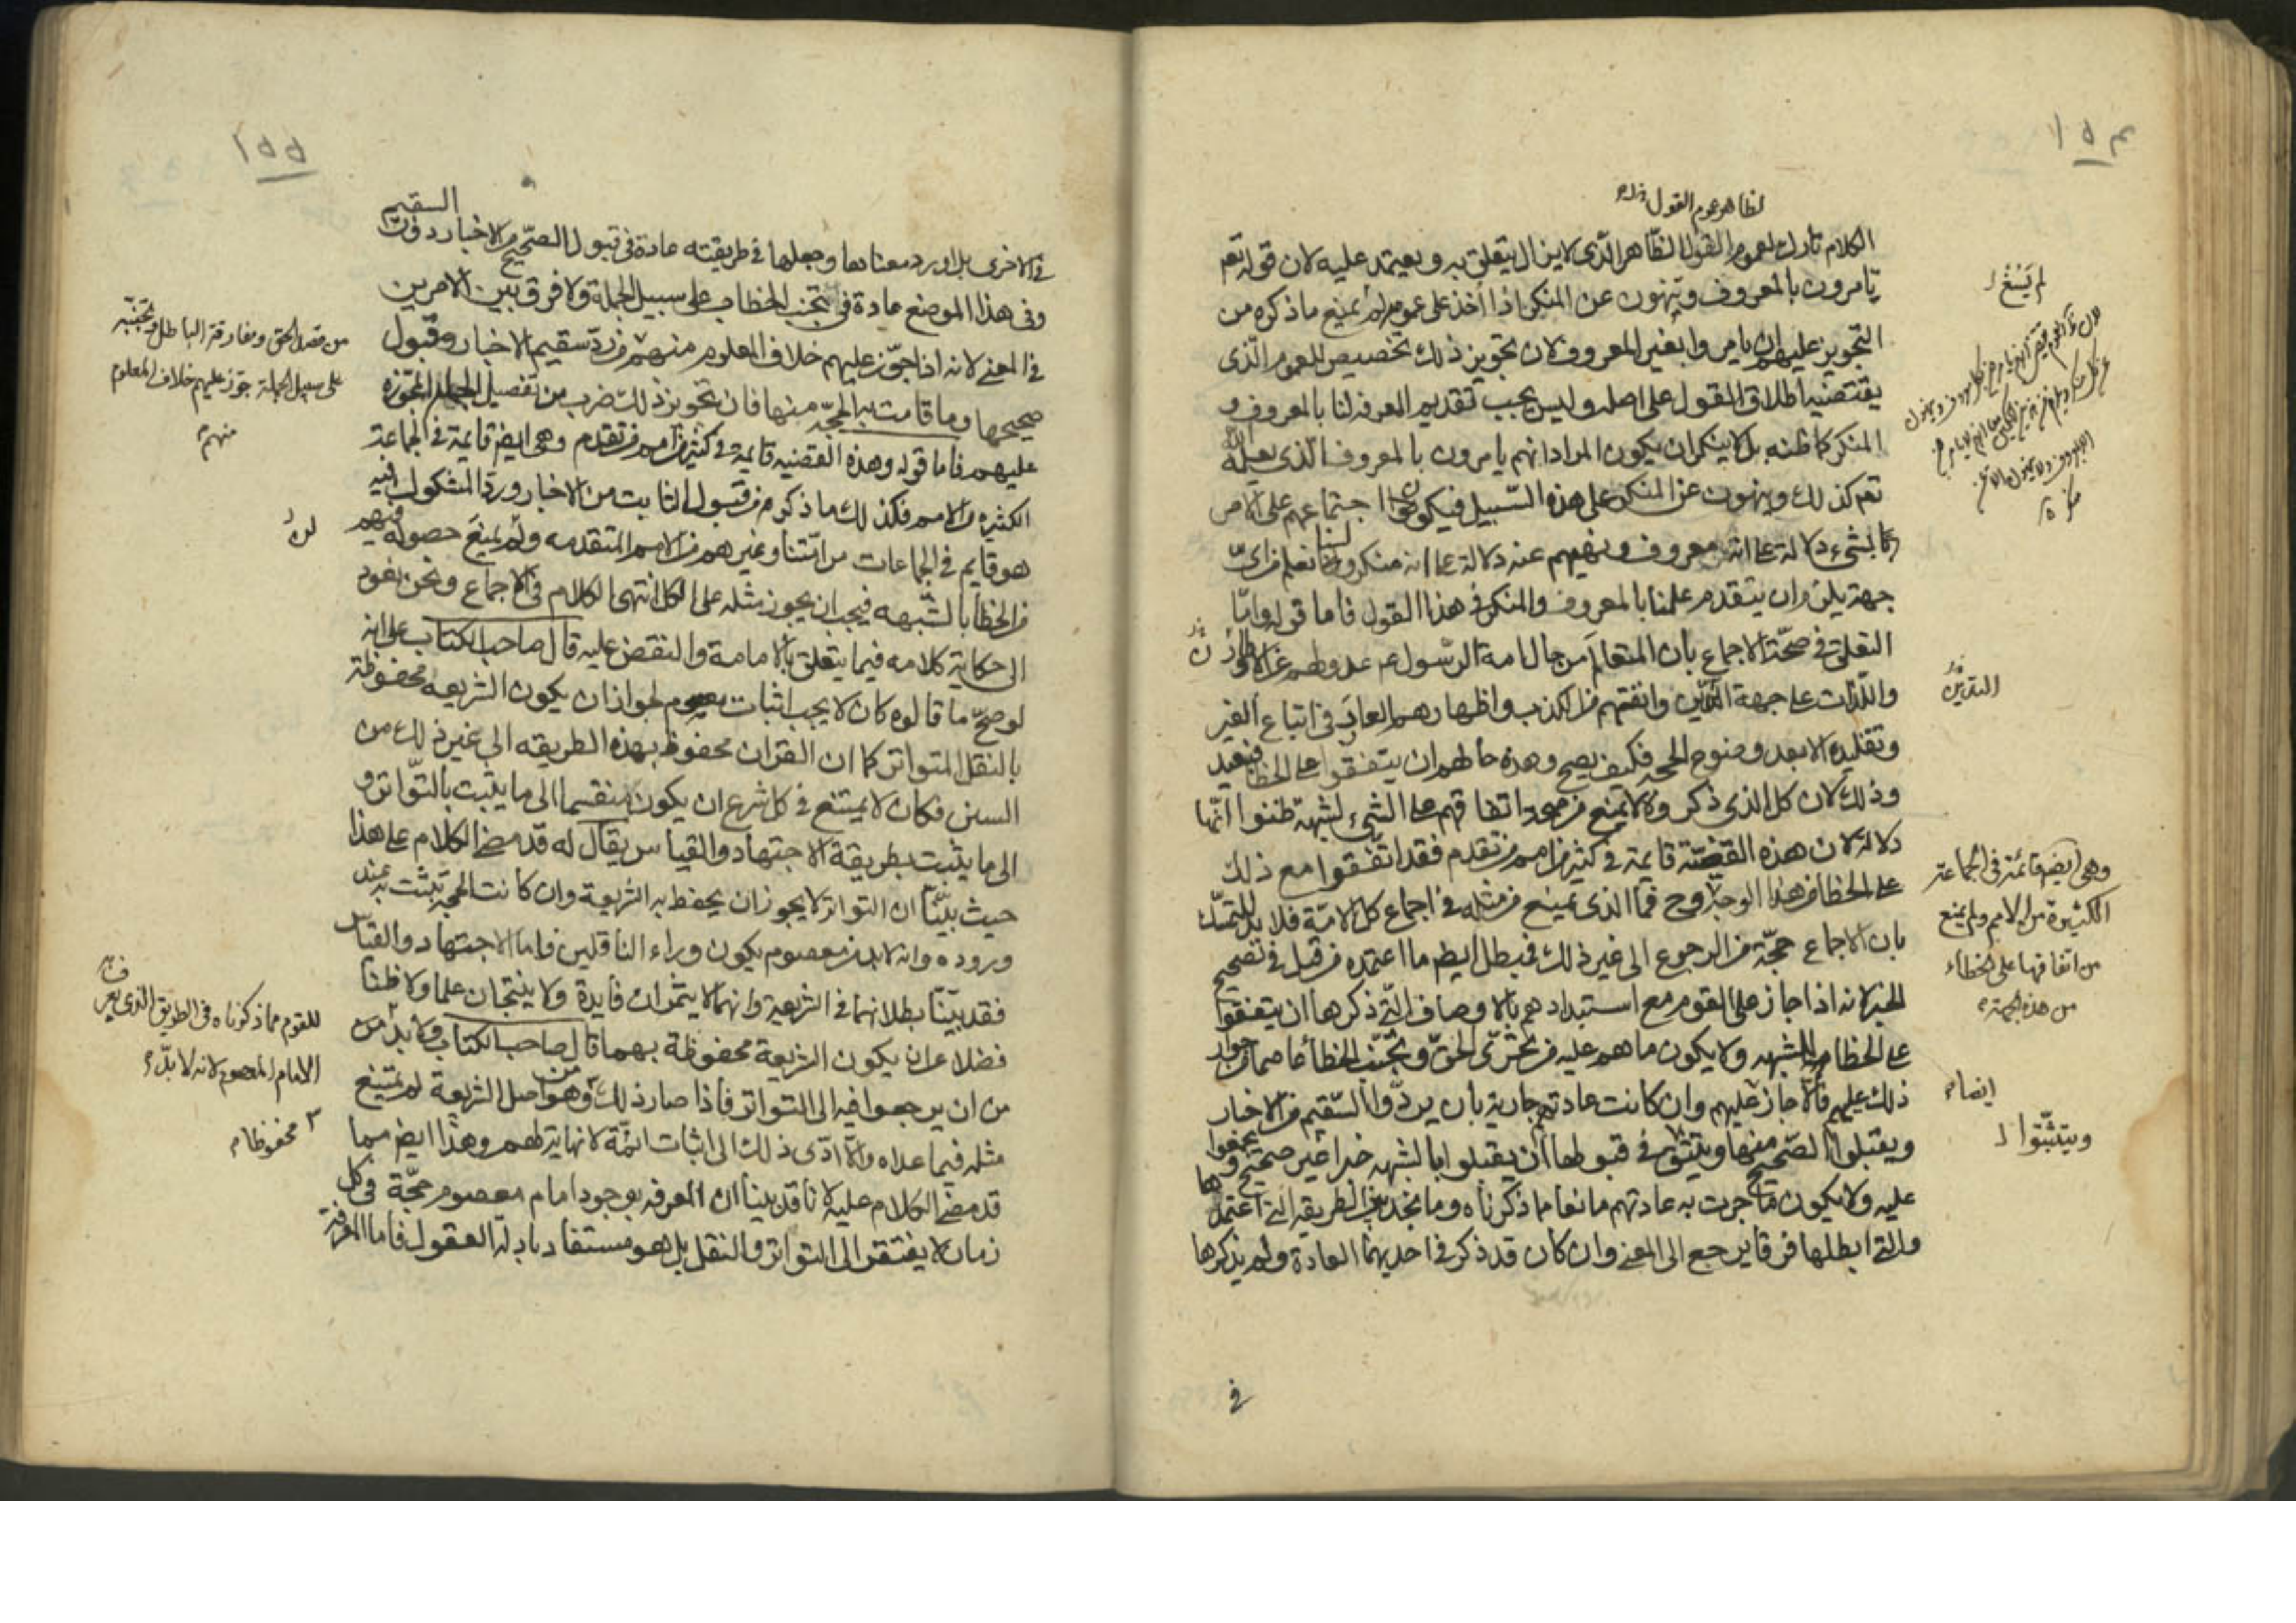 ١٥٤
لظاهر عموم القول
الكلام تارك لعموم القول الظاهر الذى لا يزال يتعلق به ويعتمد عليه لان قوله تعم
يامرون بالمعروف وينهون عن المنكر اذا اخذ على عمومه لم يمنع ما ذكره من
التجويز عليهم ان يامروا بغير المعروف لان تجويز ذلك تخصيص للعموم الذى
يقتضيه اطلاق القول على اصله وليس يجب تقديم المعرفه لنا بالمعروف و
المنكر كما ظنه بل لا ينكر ان يكون المراد انهم يامرون بالمعروف الذى يعلمه الله
تعم كذلك وينهون عن المنكر على هذه السبيل فيكون اجتماعهم على الامر
بالشىء دلالة على انه معروف ونهيهم عنه دلالة على انه منكر ولسنا نعلم من اىّ
جهة يلزم ان يتقدم علمنا بالمعروف والمنكر فى هذا القول فاما قوله وامّا
التعلق فى صحّة الاجماع بان المتعالم من حال امة الرسول عم عدولهم عن الاوطان
واللذات على جهة التديّن وانفتهم من الكذب واظهارهم العار فى اتباع الغير
وتقليده الا بعد وضوح الحجه فكيف يصح وهذه حالهم ان يتفقوا على الخطا فبعيد
وذلك لان كل الذى ذكروه لا يمنع من صحة اتفاقهم على الشىء لشبهة ظنوا انّها
دلالة لان هذه القضيّة قايمة فى كثير من امم من تقدم فقد اتّفقوا مع ذلك
على الخطا من هذا الوجه فما الذى يمنع من مثله فى اجماع كل الامّة فلا بد للمتمسّك
بان الاجماع حجّة من الرجوع الى غير ذلك فبطل ايضا ما اعتمده من قبل فى تصحيح
الخبر لانه اذا جاز على القوم مع استبدادهم بالاوصاف التى ذكرها ان يتفقوا
على الخطا للشبهه ولا يكون ما هم عليه من تحرّى الحقّ وتجنّب الخطأ عاصما من جواز
ذلك عليهم فالا جاز عليهم وان كانت عادتهم جارية بان يردّوا السّقيم من الاخبار
ويقبلوا الصّحيح منها ويتثبّتوا فى قبولها ان يقبلوا بالشبهه خبرا غير صحيح ويجمعوا
عليه ولا يكون ما جرت به عادتهم مانعا مما ذكرناه وما نجد بين الطريقه التى اعتمدها
والتى ابطلها فرقا يرجع الى المعنى وان كان قد ذكر فى احديهما العادة ولم يذكرها
فى
لم يَسُغ
التديّن
وهى ايضا قائمة فى الجماعة
الكثيرة من الامم ولم يمنع
من اتفاقها على الخطاء
من هذه الجهة
ايضا
ويتثبّتوا
١٥٥
السقيم
فى الاخرى بل اورد معناها وجعلها فى طريقته عادة فى قبول الصّحيح من الاخبار دون
وفى هذا الموضع عادة فى تجنب الخطا على سبيل الجملة ولا فرق بين الامرين
فى المعنى لانه اذا جوّز عليهم خلاف المعلوم منهم من ردّ سقيم الاخبار وقبول
صحيحها وما قامت به الحجّة منها فان تجويز ذلك ضرب من تفصيل الجمله المجوّزه
عليهم فاما قوله وهذه القضيه قايمة فى كثير من امم من تقدم وهى ايضا قايمة فى الجماعة
الكثيره من الامم فكذلك ما ذكره من قبول الثابت من الاخبار وردّ المشكوك فيه
هو قايم فى الجماعات من امّتنا وغيرهم من الامم المتقدمه ولم يمنع حصوله فيهم
من الخطأ بالشّبهه فيجب ان يجوز مثله على الكل انتهى الكلام فى الاجماع ونحن نعود
الى حكاية كلامه فيما يتعلق بالامامة والنقض عليه قال صاحب الكتاب على انه
لو صحّ ما قالوه كان لا يجب اثبات معصوم لجواز ان يكون الشريعه محفوظة
بالنقل المتواتر كما ان القران محفوظ بهذه الطريقه الى غير ذلك من
السنن فكان لا يمتنع فى كل شرع ان يكون منقسما الى ما يثبت بالتّواتر و
الى ما يثبت بطريقة الاجتهاد والقياس يقال له قد مضى الكلام على هذا
حيث بيّنّا ان التواتر لا يجوز ان يحفظ به الشريعة وان كانت الحجة تثبت به عند
وروده وانه لا بد من معصوم يكون وراء الناقلين فاما الاجتهاد والقياس
فقد بيّنّا بطلانهما فى الشريعة وانهما لا يثمران فايدة ولا ينتجان علما ولا ظنا
فضلا عن ان يكون الشريعة محفوظة بهما قال صاحب الكتاب ولا بدّ من
من ان يرجعوا فيه الى التواتر فاذا صار ذلك وهو من اصل الشريعة لم يمتنع
مثله فيما عداه والّا ادّى ذلك الى اثبات ائمّة لا نهاية لهم وهذا ايضا مما
قد مضى الكلام عليه لانا قد بينا ان المعرفه بوجود امام معصوم حجّة فى كل
زمان لا يفتقر الى التواتر والنقل بل هو مستفاد بادلّة العقول فاما المعرفة
من قصد الحق ومفارقة الباطل وتجنّبه
على سبيل الجملة جوّز عليهم خلاف المعلوم
منهم
للقوم مما ذكرناه فى الطريق الذى يعرف
الامام المعصوم لانه لا بدّ
محفوظا